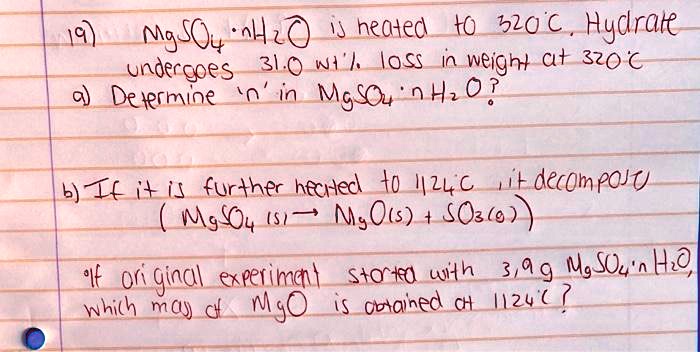 19) MgSO4 ·nH2O is heated to 320°C. Hydrate
undergoes 31.0 wt% loss in weight at 320°C
a) Determine 'n' in MgSO4·nH2O?
b) If it is further heated to 1124°C, it decompose
(MgSO4 (s) → MgO(s) + SO3(g))
°If original experiment started with 3,9g MgSO4·nH2O,
which mass of MgO is obtained at 1124°C?